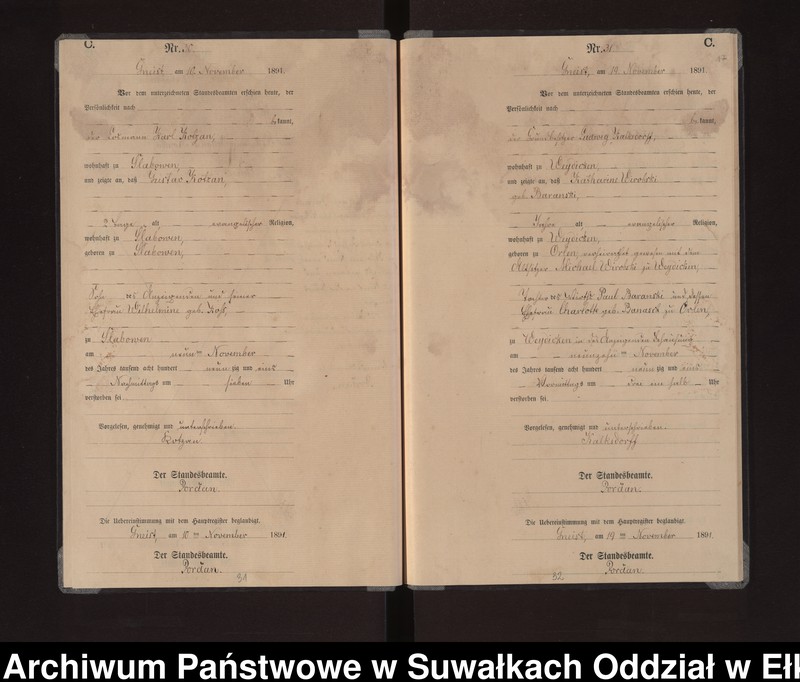 C.
Nr. 30
Gneist, am 10 November 1891.
Vor dem unterzeichneten Standesbeamten erschien heute, der
Persönlichkeit nach
bekannt,
der Losmann Karl Kotzan,
wohnhaft zu Glabowen,
und zeigte an, daß Gustav Kotzan,
2 Tage alt evangelischer Religion,
wohnhaft zu Glabowen,
geboren zu Glabowen,
Sohn des Anzeigenden und seiner
Ehefrau Wilhelmine geb.
zu Glabowen
am neunten November
des Jahres tausend acht hundert neunzig und eins
Nachmittags um sieben Uhr
verstorben sei.
Vorgelesen, genehmigt und unterschrieben.
Kotzan
Der Standesbeamte.
Jordan.
Die Uebereinstimmung mit dem Hauptregister beglaubigt.
Gneist, am 10 ten November 1891.
Der Standesbeamte.
Jordan.
31
C.
Nr. 31
Gneist, am 19 November 1891
Vor dem unterzeichneten Standesbeamten erschien heute, der
Persönlichkeit nach
bekannt,
der Grundbesitzer Ludwig Kalksdorff,
wohnhaft zu Weydicken,
und zeigte an, daß Katharine
geb. Baranski,
Jahre alt evangelischer Religion,
wohnhaft zu Weydicken,
geboren zu Orlen, verheirathet gewesen mit dem
Altsitzer Michael zu Weydicken,
Tochter des Paul Baranski und dessen
Ehefrau Charlotte geb. zu Orlen,
zu Weydicken in des Anzeigenden Behausung
am neunzehnten November
des Jahres tausend acht hundert neunzig und eins
Vormittags um ein halb Uhr
verstorben sei.
Vorgelesen, genehmigt und unterschrieben.
Kalksdorff
Der Standesbeamte.
Jordan.
Die Uebereinstimmung mit dem Hauptregister beglaubigt.
Gneist, am 19 ten November 1891.
Der Standesbeamte.
Jordan.
32
Archiwum Państwowe w Suwałkach Oddział w Ełk